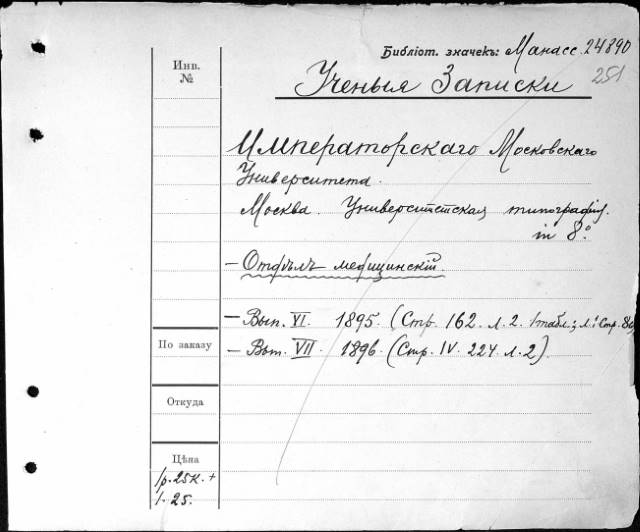 Библіот. значекъ: Манасс. 24890
251
Инв.
№
Ученыя Записки
Императорскаго Московскаго
Университета.
Москва. Университетская типографія.
in 8°.
— Отдѣлъ медицинскій.
— Вып. VI. 1895. (Стр. 162. л. 2. 1 табл.;
— Вып. VII. 1896. (Стр. IV. 224. л. 2).
По заказу
Откуда
Цѣна
1р. 25к. +
1. 25.